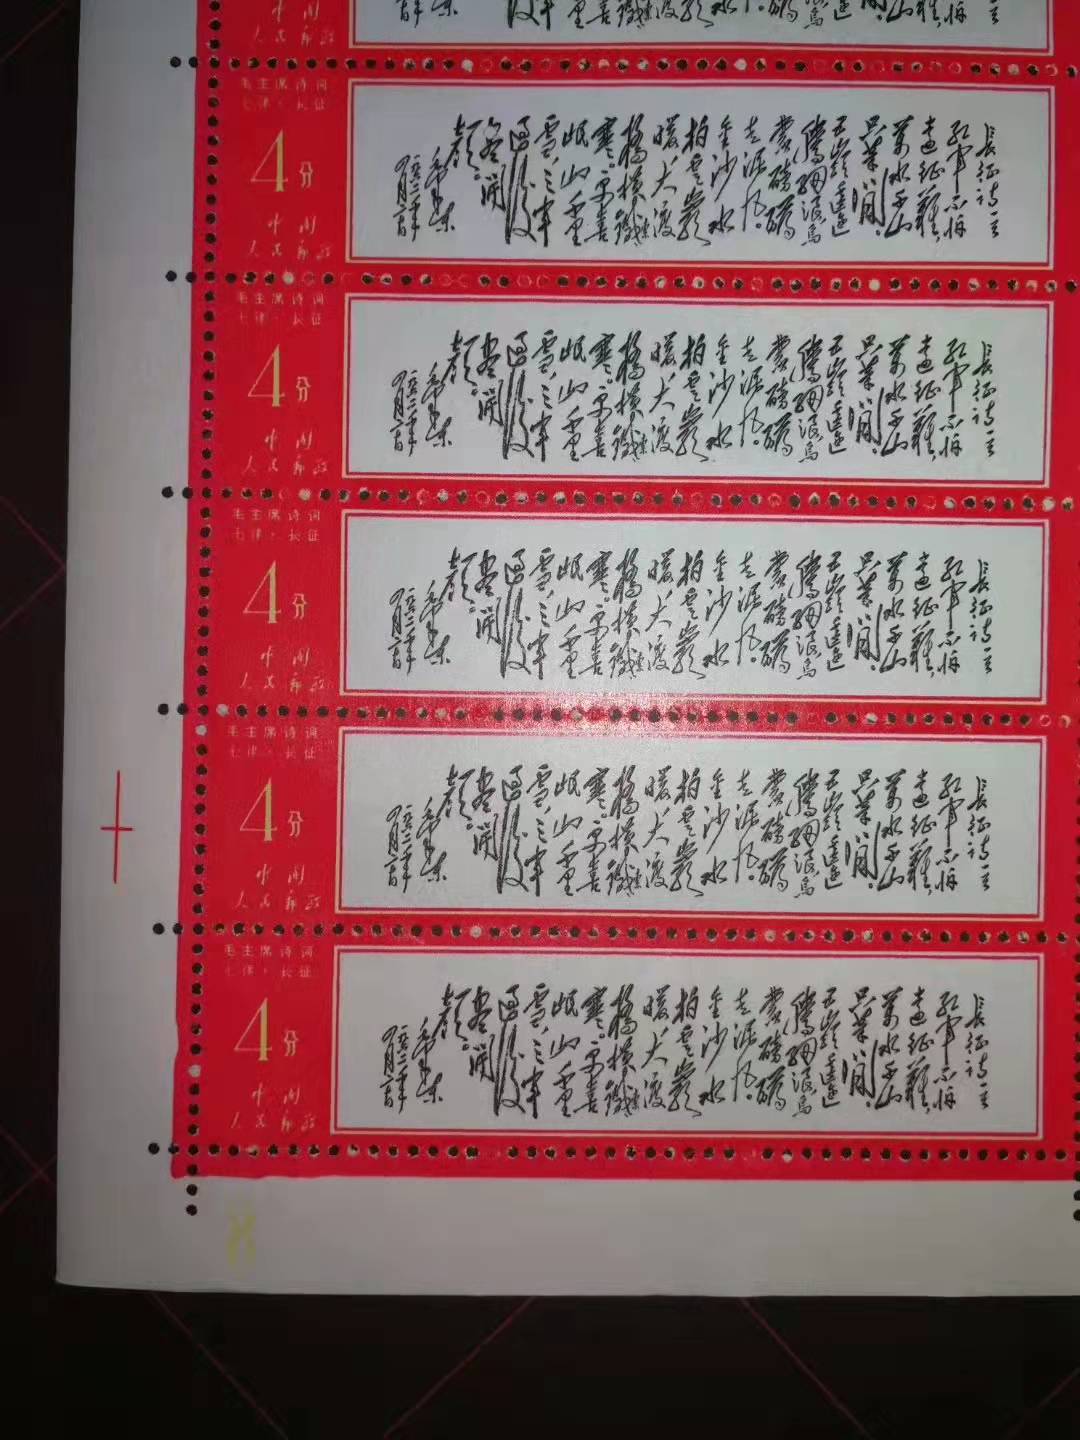 中国
人民邮政
毛主席诗词
七律·长征
4分
中国
人民邮政
長征詩一首
紅軍不怕
遠征難，
萬水千山
只等閒。
五嶺逶迤
騰細浪，烏
蒙磅礴
走泥丸。
金沙水
拍雲崖
暖，大渡
橋橫鐵索
寒。更喜
岷山千里
雪，三軍
過後
盡開
顏。
毛澤東
一九六二年
四月廿日
毛主席诗词
七律·长征
4分
中国
人民邮政
長征詩一首
紅軍不怕
遠征難，
萬水千山
只等閒。
五嶺逶迤
騰細浪，烏
蒙磅礴
走泥丸。
金沙水
拍雲崖
暖，大渡
橋橫鐵索
寒。更喜
岷山千里
雪，三軍
過後
盡開
顏。
毛澤東
一九六二年
四月廿日
毛主席诗词
七律·长征
4分
中国
人民邮政
長征詩一首
紅軍不怕
遠征難，
萬水千山
只等閒。
五嶺逶迤
騰細浪，烏
蒙磅礴
走泥丸。
金沙水
拍雲崖
暖，大渡
橋橫鐵索
寒。更喜
岷山千里
雪，三軍
過後
盡開
顏。
毛澤東
一九六二年
四月廿日
毛主席诗词
七律·长征
4分
中国
人民邮政
長征詩一首
紅軍不怕
遠征難，
萬水千山
只等閒。
五嶺逶迤
騰細浪，烏
蒙磅礴
走泥丸。
金沙水
拍雲崖
暖，大渡
橋橫鐵索
寒。更喜
岷山千里
雪，三軍
過後
盡開
顏。
毛澤東
一九六二年
四月廿日
毛主席诗词
七律·长征
4分
中国
人民邮政
長征詩一首
紅軍不怕
遠征難，
萬水千山
只等閒。
五嶺逶迤
騰細浪，烏
蒙磅礴
走泥丸。
金沙水
拍雲崖
暖，大渡
橋橫鐵索
寒。更喜
岷山千里
雪，三軍
過後
盡開
顏。
毛澤東
一九六二年
四月廿日